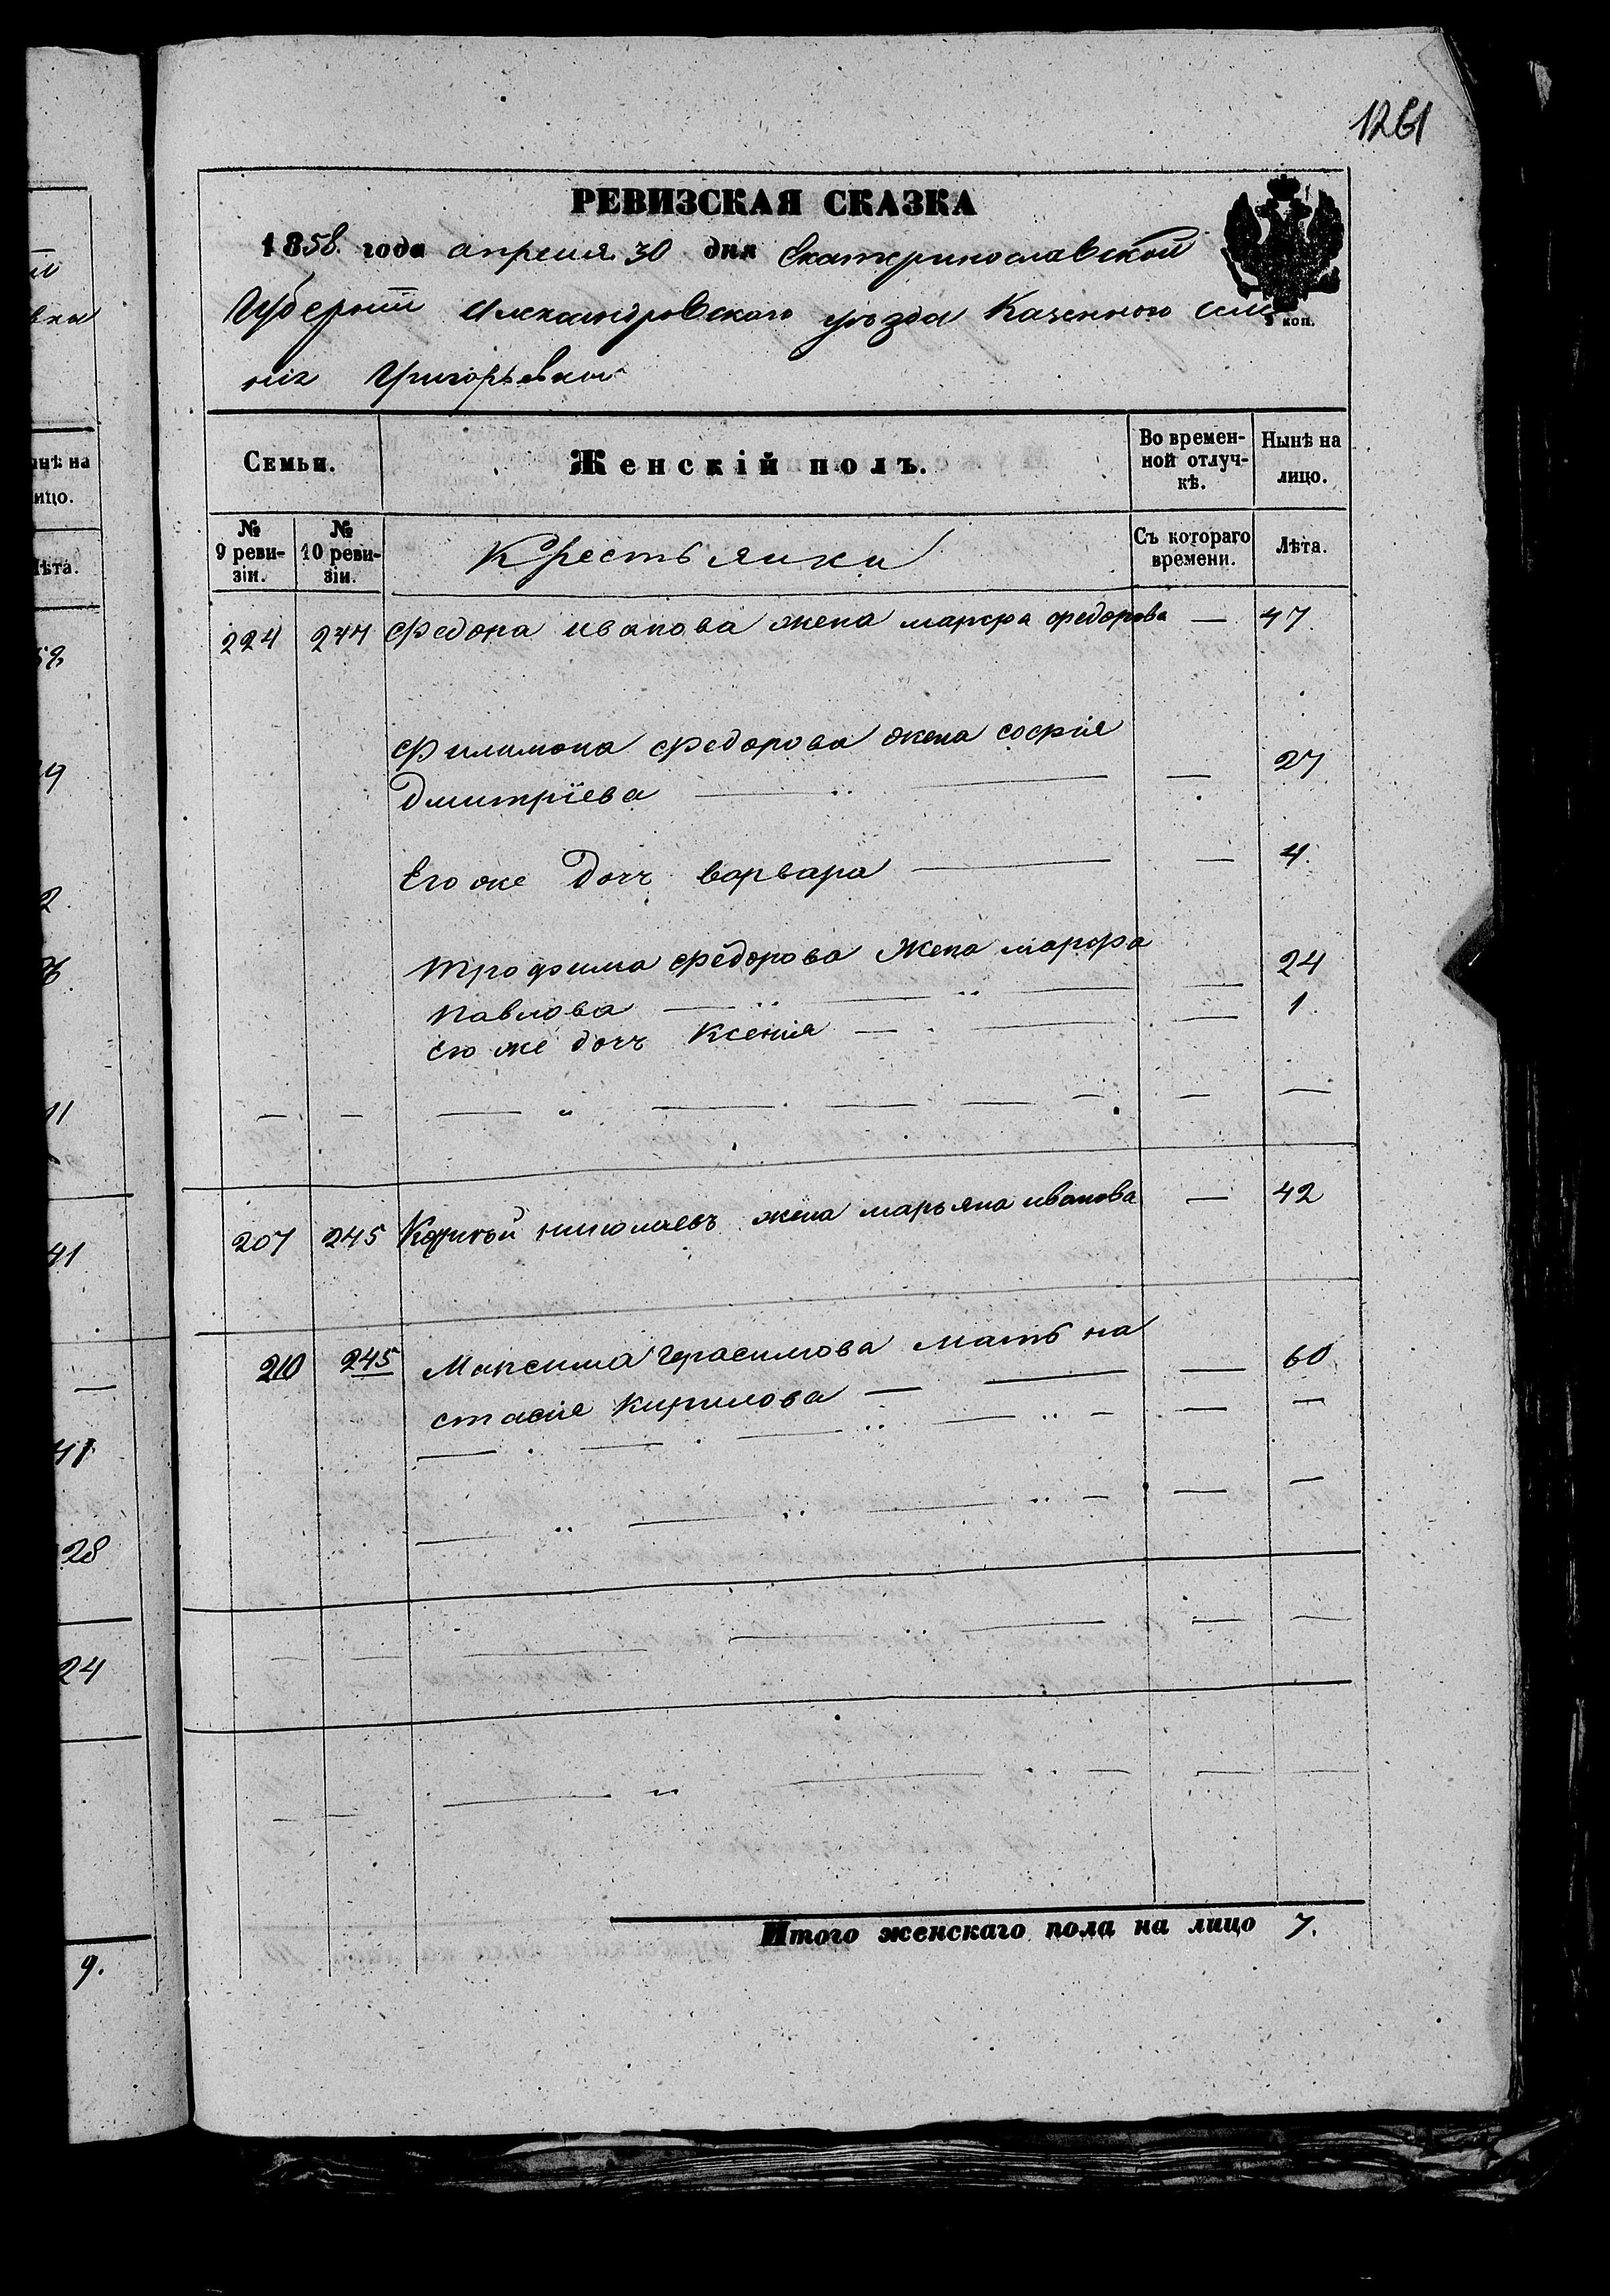 1261
РЕВИЗСКАЯ СКАЗКА
1858 года апреля 30 дня Екатеринославской
Губернии Александровского уезда Казенного селе
нія Григорьевки
5 коп.
Семьи. Женскій полъ. Во времен-ной отлуч-кѣ. Нынѣ на лицо.
№ 9 реви-зіи. № 10 реви-зіи. Крестьянки Съ котораго времени. Лѣта.
224 244 Федора иванова жена марфа федорова — 47
Филимона федорова жена софія
Дмитріева — 27
Его же дочь варвара — 4.
Трофима федорова жена марфа
павлова — 24
его же дочь Ксенія — 1.
207 245 николаевъ жена марьяна иванова — 42
210 245 Максима Герасимова мать на
стасія Кирилова — 60
Итого женскаго пола на лицо 7.
нѣ на
ицо.
ѣта.
11
41
28
24
9.